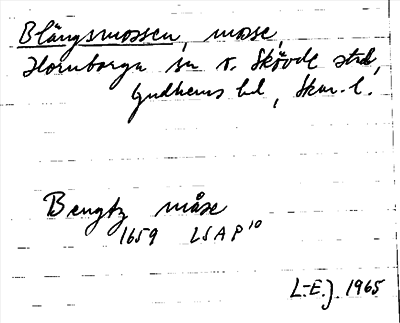 Blängsmossen, mosse,
Hornborga sn v. Skövde stad,
Gudhems hd, Skar. l.
Bengtz måse
1659 LSAP 10
L-E.J. 1965